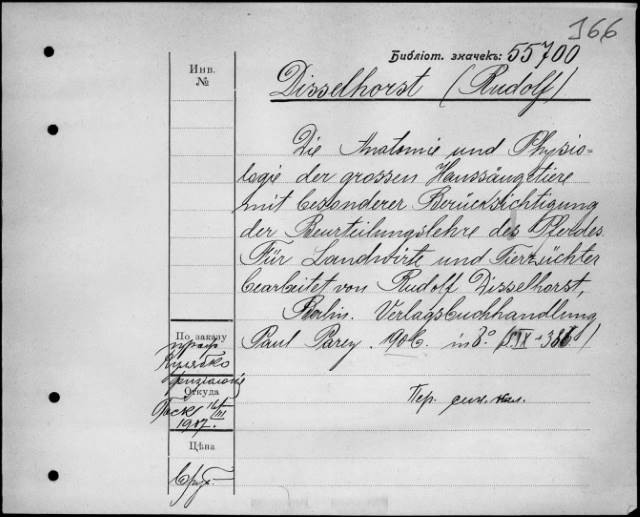 166
Библіот. значекъ: 55700
Инв.
№
Disselhorst (Rudolf)
Die Anatomie und Physio-
logie der grossen Haussäugetiere
mit besonderer Berücksichtigung
der Beurteilungslehre des Pferdes.
Für Landwirte und Tierzüchter
bearbeitet von Rudolf Disselhorst,
Berlin. Verlagsbuchhandlung
Paul Parey. 1906. in 8º
По заказу
проф
Кулябко
Откуда
1907.
Пер.
Цѣна